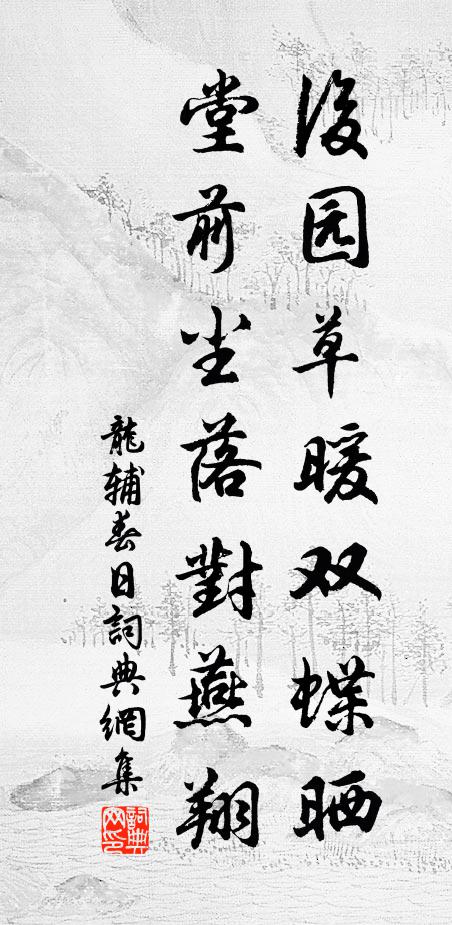 後园草暖双蝶晒
堂前尘落對燕翔
龍辅春日詞典網集
詞典網印